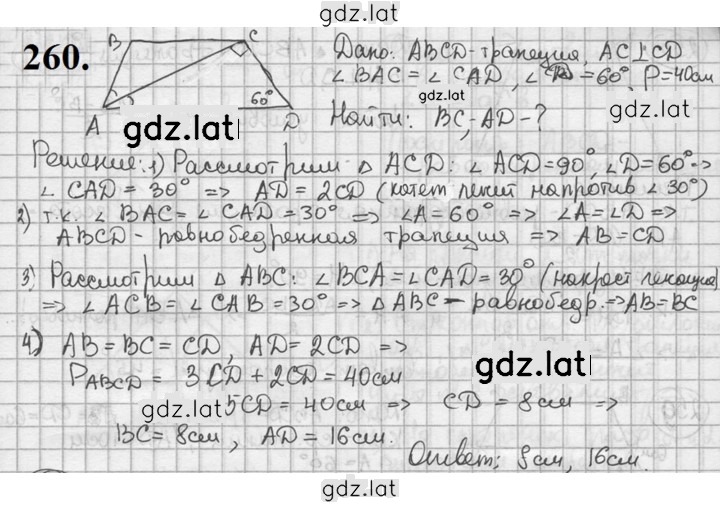 gdz.lat
260.
B C
A D
60°
Дано: ABCD-трапеция, AC⊥CD
∠BAC = ∠CAD, ∠D = 60°, P=40см
gdz.lat
gdz.lat
Найти: BC, AD - ?
Решение: 1) Рассмотрим △ ACD: ∠ACD=90°, ∠D=60° =>
∠ CAD = 30° => AD = 2CD (катет лежит напротив ∠ 30°)
2) т.к. ∠ BAC = ∠ CAD = 30° => ∠A = 60° => ∠A = ∠D =>
ABCD - равнобедренная трапеция => AB = CD
3) Рассмотрим △ ABC: ∠BCA = ∠CAD = 30° (накрест лежащие)
=> ∠ACB = ∠CAB = 30° => △ABC - равнобедр. => AB = BC
4) AB = BC = CD, AD = 2CD =>
gdz.lat
P ABCD = 3CD + 2CD = 40см
gdz.lat
5CD = 40см => CD = 8см =>
BC = 8см, AD = 16см.
Ответ: 8см, 16см.
gdz.lat